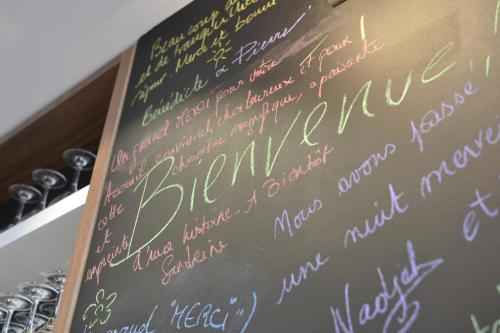 Beaucoup de
et de tranquillité
séjour. Merci et bonne
Bénédicte & Pierre
Un grand MERCI pour votre
Accueil convivial, chaleureux et pour
cette chambre magnifique, apaisante
et
empreinte d'une histoire. A Bientôt
Sandrine
Bienvenue !
Nous avons passé
une nuit
Nadjet
grand "MERCI"